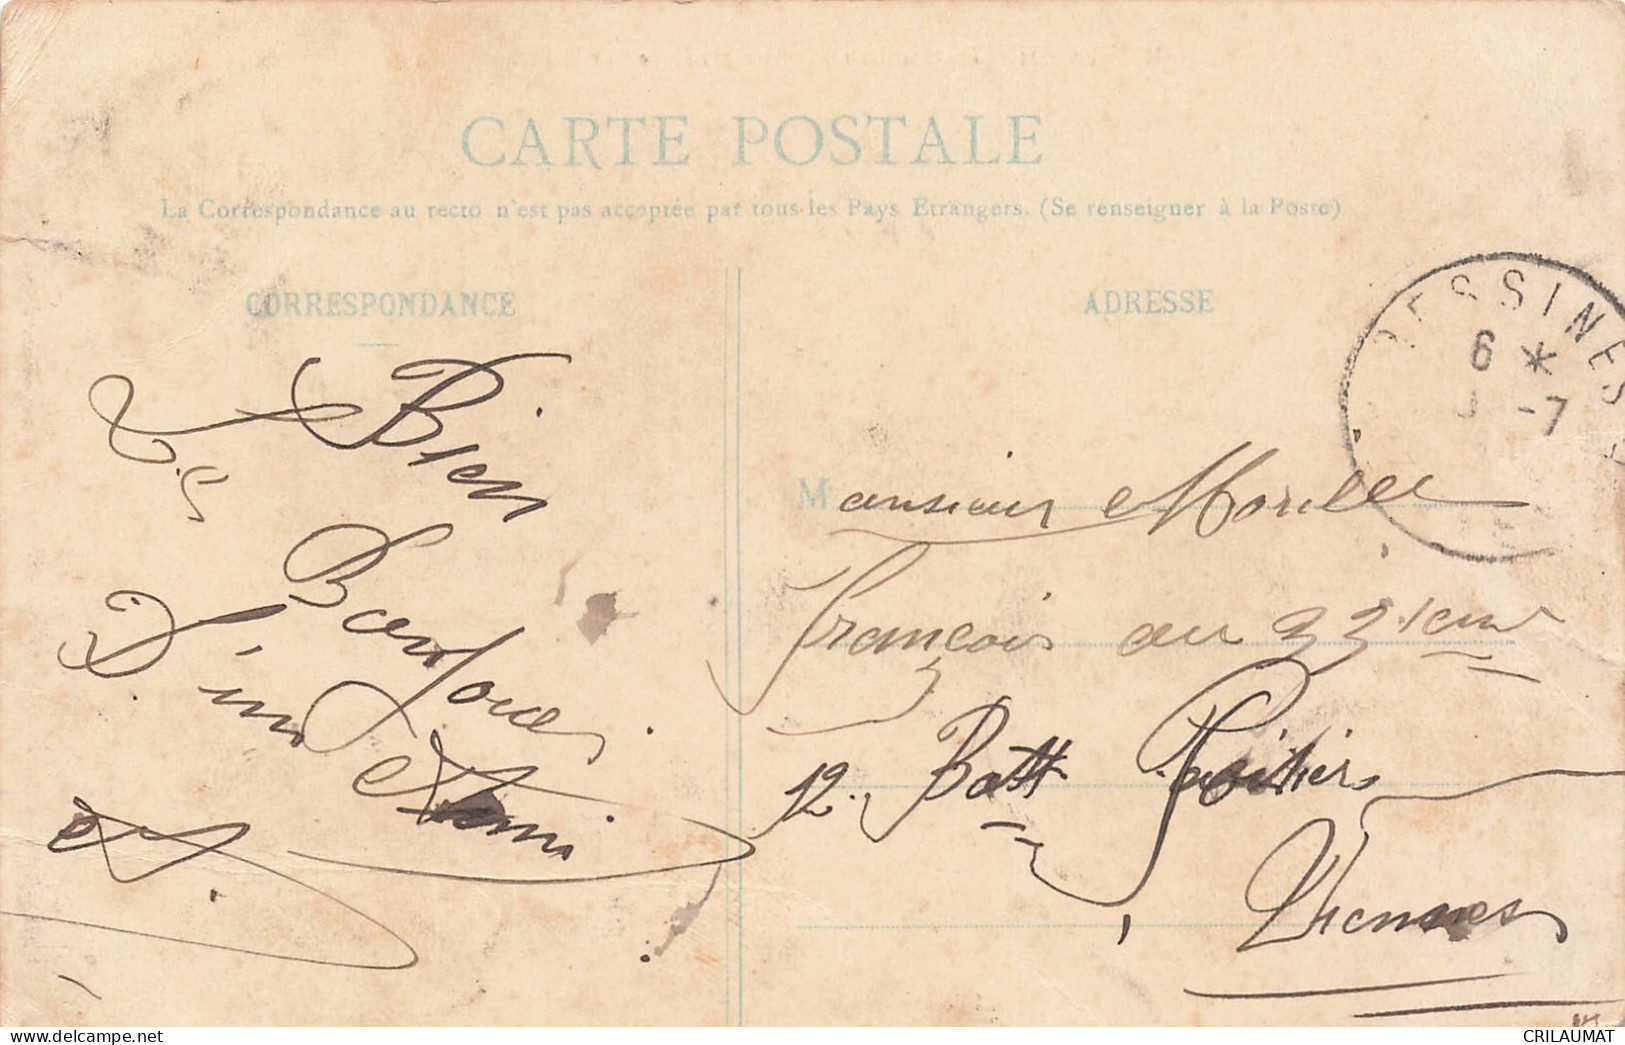 CARTE POSTALE
La Correspondance au recto n'est pas acceptée par tous les Pays Étrangers. (Se renseigner à la Poste)
CORRESPONDANCE
Bien
Bonjour
D'un
Ami
ADRESSE
ESSINES
6 *
-7
Monsieur
François au 33ieme
12 Batt Poitiers
Viennes
CRILAUMAT